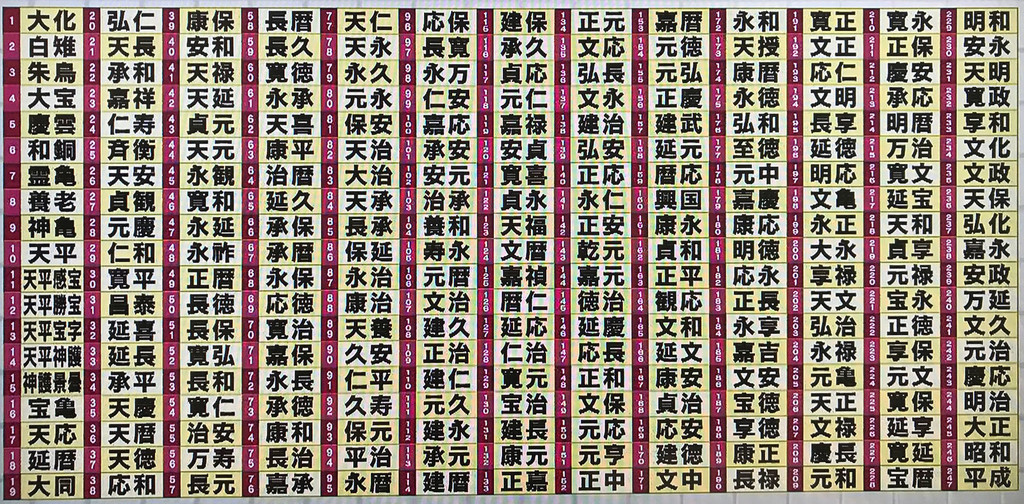 1 大化
2 白雉
3 朱鳥
4 大宝
5 慶雲
6 和銅
7 霊亀
8 養老
9 神亀
10 天平
11 天平感宝
12 天平勝宝
13 天平宝字
14 天平神護
15 神護景雲
16 宝亀
17 天応
18 延暦
19 大同
20 弘仁
21 天長
22 承和
23 嘉祥
24 仁寿
25 斉衡
26 天安
27 貞観
28 元慶
29 仁和
30 寛平
31 昌泰
32 延喜
33 延長
34 承平
35 天慶
36 天暦
37 天徳
38 応和
39 康保
40 安和
41 天禄
42 天延
43 貞元
44 天元
45 永観
46 寛和
47 永延
48 永祚
49 正暦
50 長徳
51 長保
52 寛弘
53 長和
54 寛仁
55 治安
56 万寿
57 長元
58 長暦
59 長久
60 寛徳
61 永承
62 天喜
63 康平
64 治暦
65 延久
66 承保
67 承暦
68 永保
69 応徳
70 寛治
71 嘉保
72 永長
73 承徳
74 康和
75 長治
76 嘉承
77 天仁
78 天永
79 永久
80 元永
81 保安
82 天治
83 大治
84 天承
85 長承
86 保延
87 永治
88 康治
89 天養
90 久安
91 仁平
92 久寿
93 保元
94 平治
95 永暦
96 応保
97 長寛
98 永万
99 仁安
100 嘉応
101 承安
102 安元
103 治承
104 養和
105 寿永
106 元暦
107 文治
108 建久
109 正治
110 建仁
111 元久
112 建永
113 承元
114 建暦
115 建保
116 承久
117 貞応
118 元仁
119 嘉禄
120 安貞
121 寛喜
122 貞永
123 天福
124 文暦
125 嘉禎
126 暦仁
127 延応
128 仁治
129 寛元
130 宝治
131 建長
132 康元
133 正嘉
134 正元
135 文応
136 弘長
137 文永
138 建治
139 弘安
140 正応
141 永仁
142 正安
143 乾元
144 嘉元
145 徳治
146 延慶
147 応長
148 正和
149 文保
150 元応
151 元亨
152 正中
153 嘉暦
154 元徳
155 元弘
156 正慶
157 建武
158 延元
159 暦応
160 興国
161 康永
162 貞和
163 正平
164 観応
165 文和
166 延文
167 康安
168 貞治
169 応安
170 建徳
171 文中
172 永和
173 天授
174 康暦
175 永徳
176 弘和
177 至徳
178 元中
179 嘉慶
180 康応
181 明徳
182 応永
183 正長
184 永享
185 嘉吉
186 文安
187 宝徳
188 享徳
189 康正
190 長禄
191 寛正
192 文正
193 応仁
194 文明
195 長享
196 延徳
197 明応
198 文亀
199 永正
200 大永
201 享禄
202 天文
203 弘治
204 永禄
205 元亀
206 天正
207 文禄
208 慶長
209 元和
210 寛永
211 正保
212 慶安
213 承応
214 明暦
215 万治
216 寛文
217 延宝
218 天和
219 貞享
220 元禄
221 宝永
222 正徳
223 享保
224 元文
225 寛保
226 延享
227 寛延
228 宝暦
229 明和
230 安永
231 天明
232 寛政
233 享和
234 文化
235 文政
236 天保
237 弘化
238 嘉永
239 安政
240 万延
241 文久
242 元治
243 慶応
244 明治
245 大正
246 昭和
247 平成